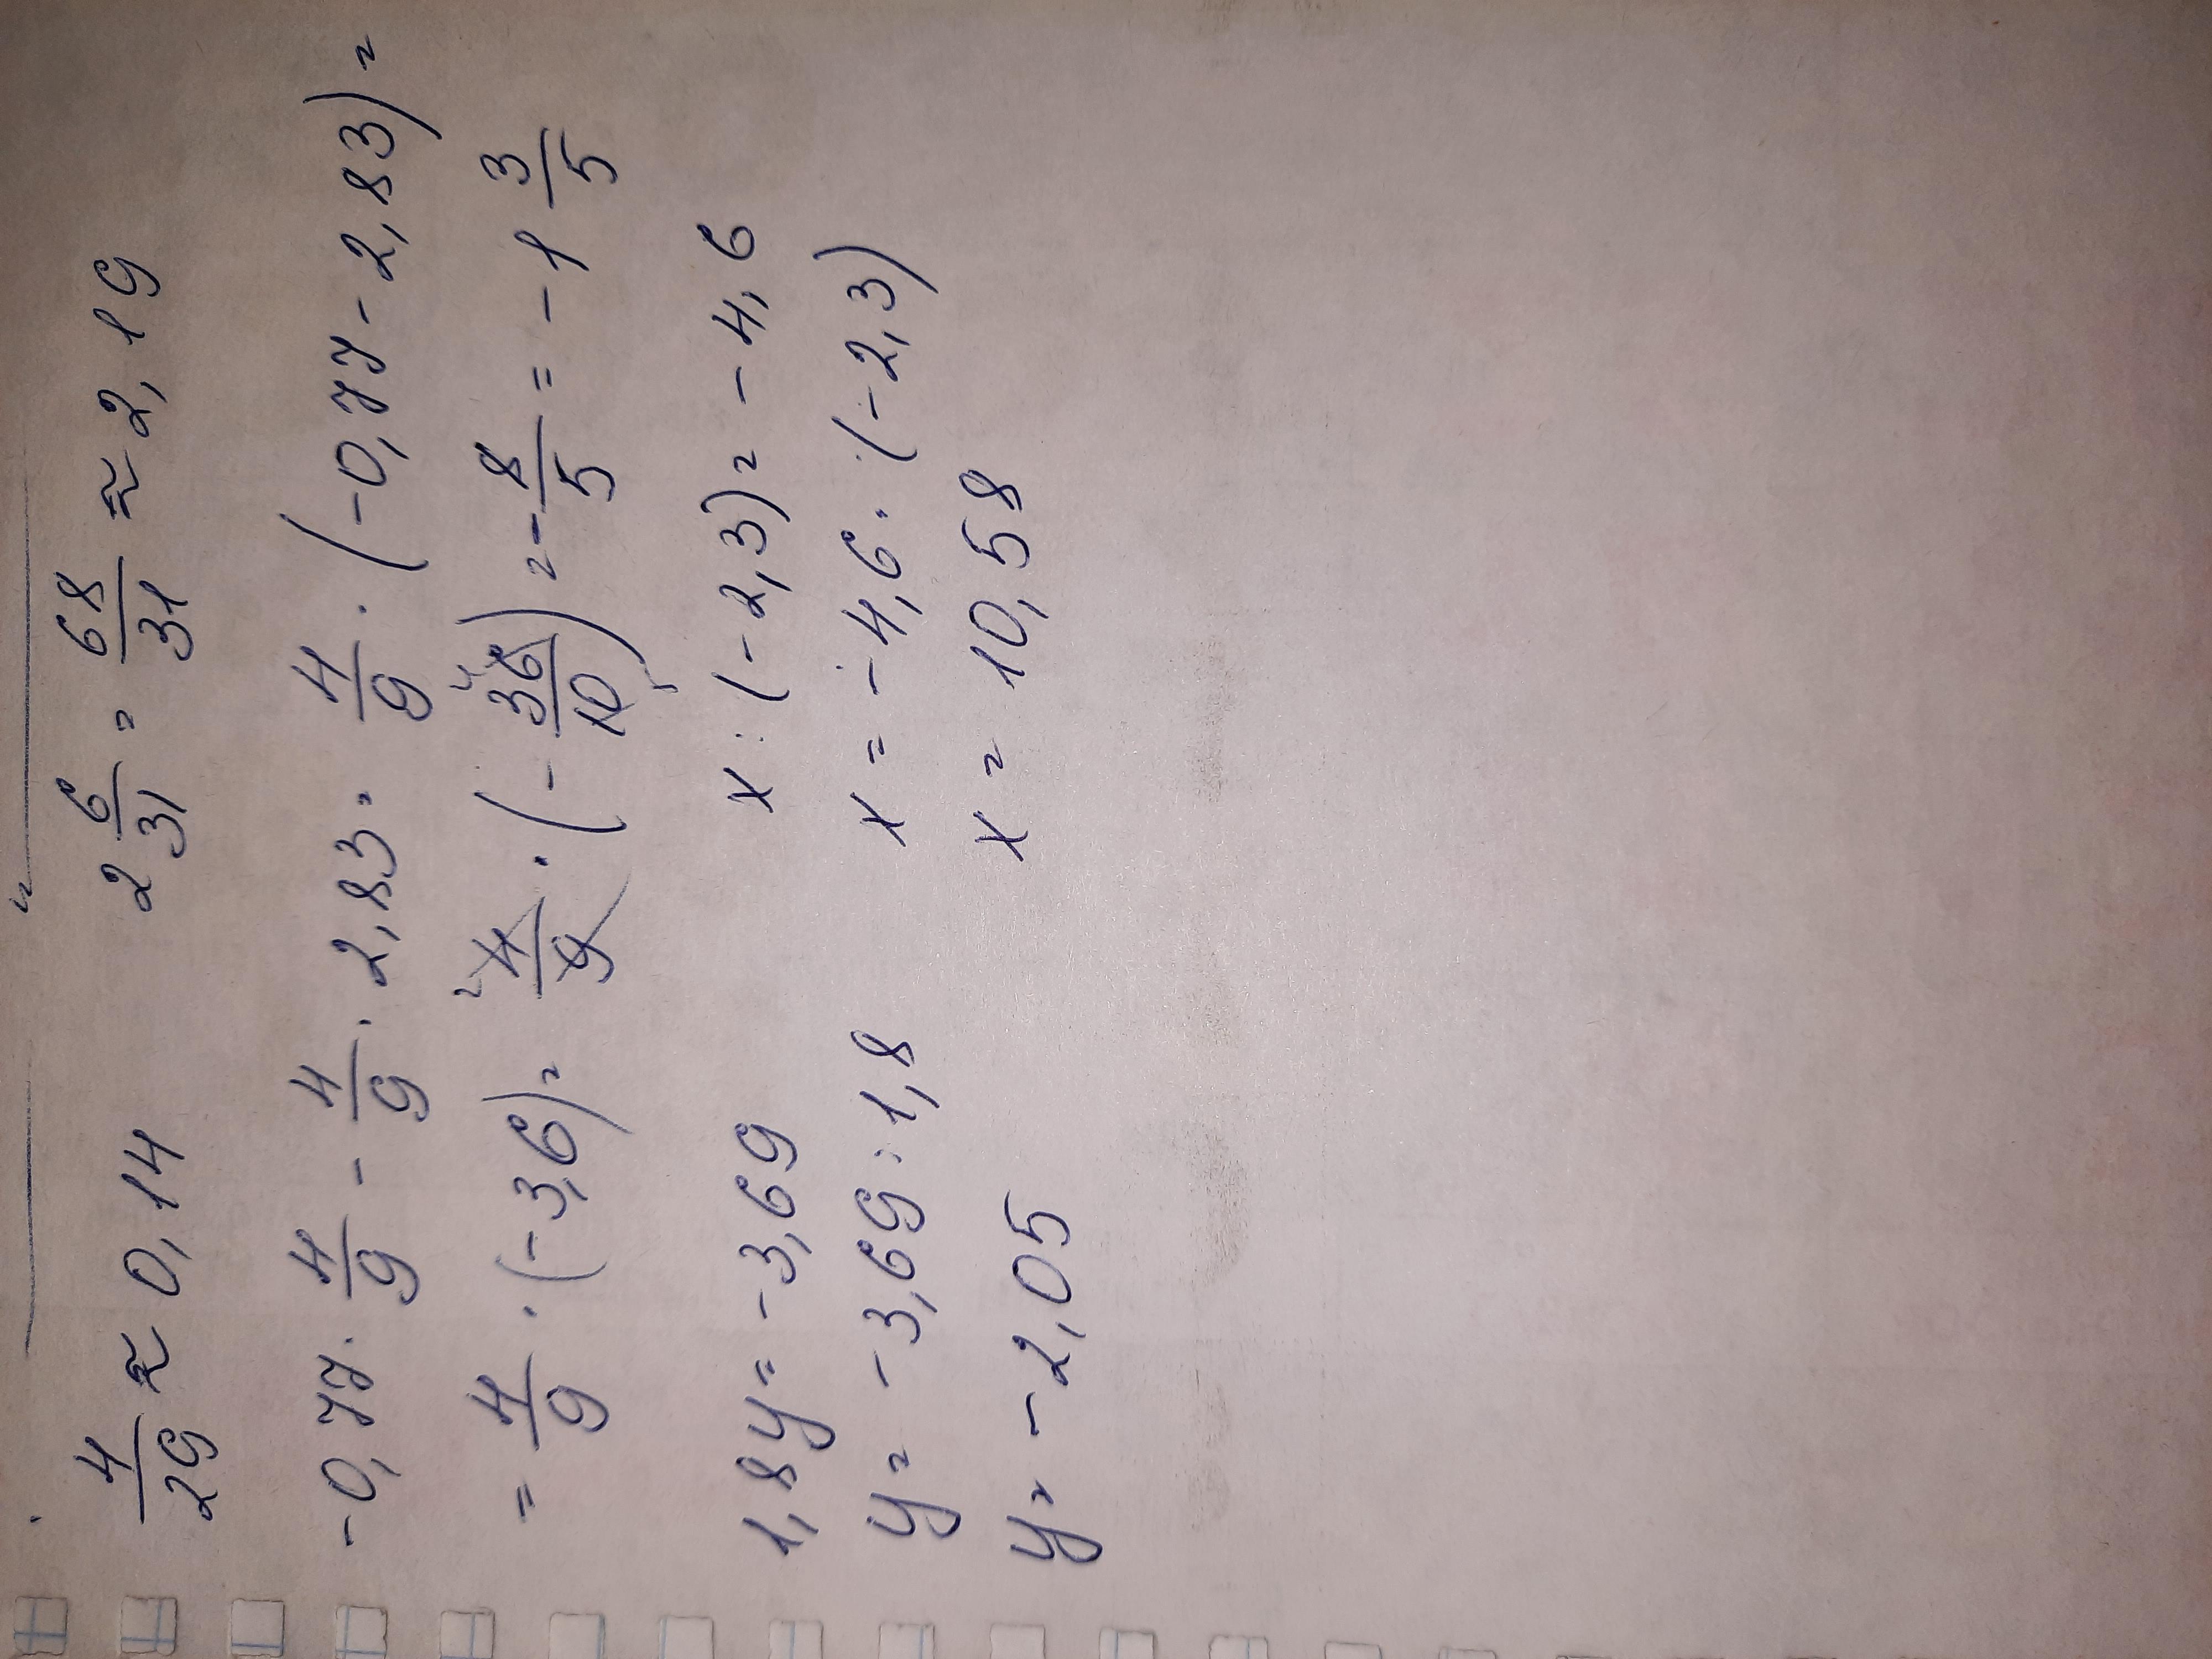 4/29 ≈ 0,14 2 6/31 = 68/31 ≈ 2,19
-0,77 · 4/9 - 4/9 · 2,83 = 4/9 · (-0,77 - 2,83) =
= 4/9 · (-3,6) = 4/9 · (-36/10) = -8/5 = -1 3/5
1,8y = -3,69 x : (-2,3) = -4,6
y = -3,69 : 1,8 x = -4,6 · (-2,3)
y = -2,05 x = 10,58